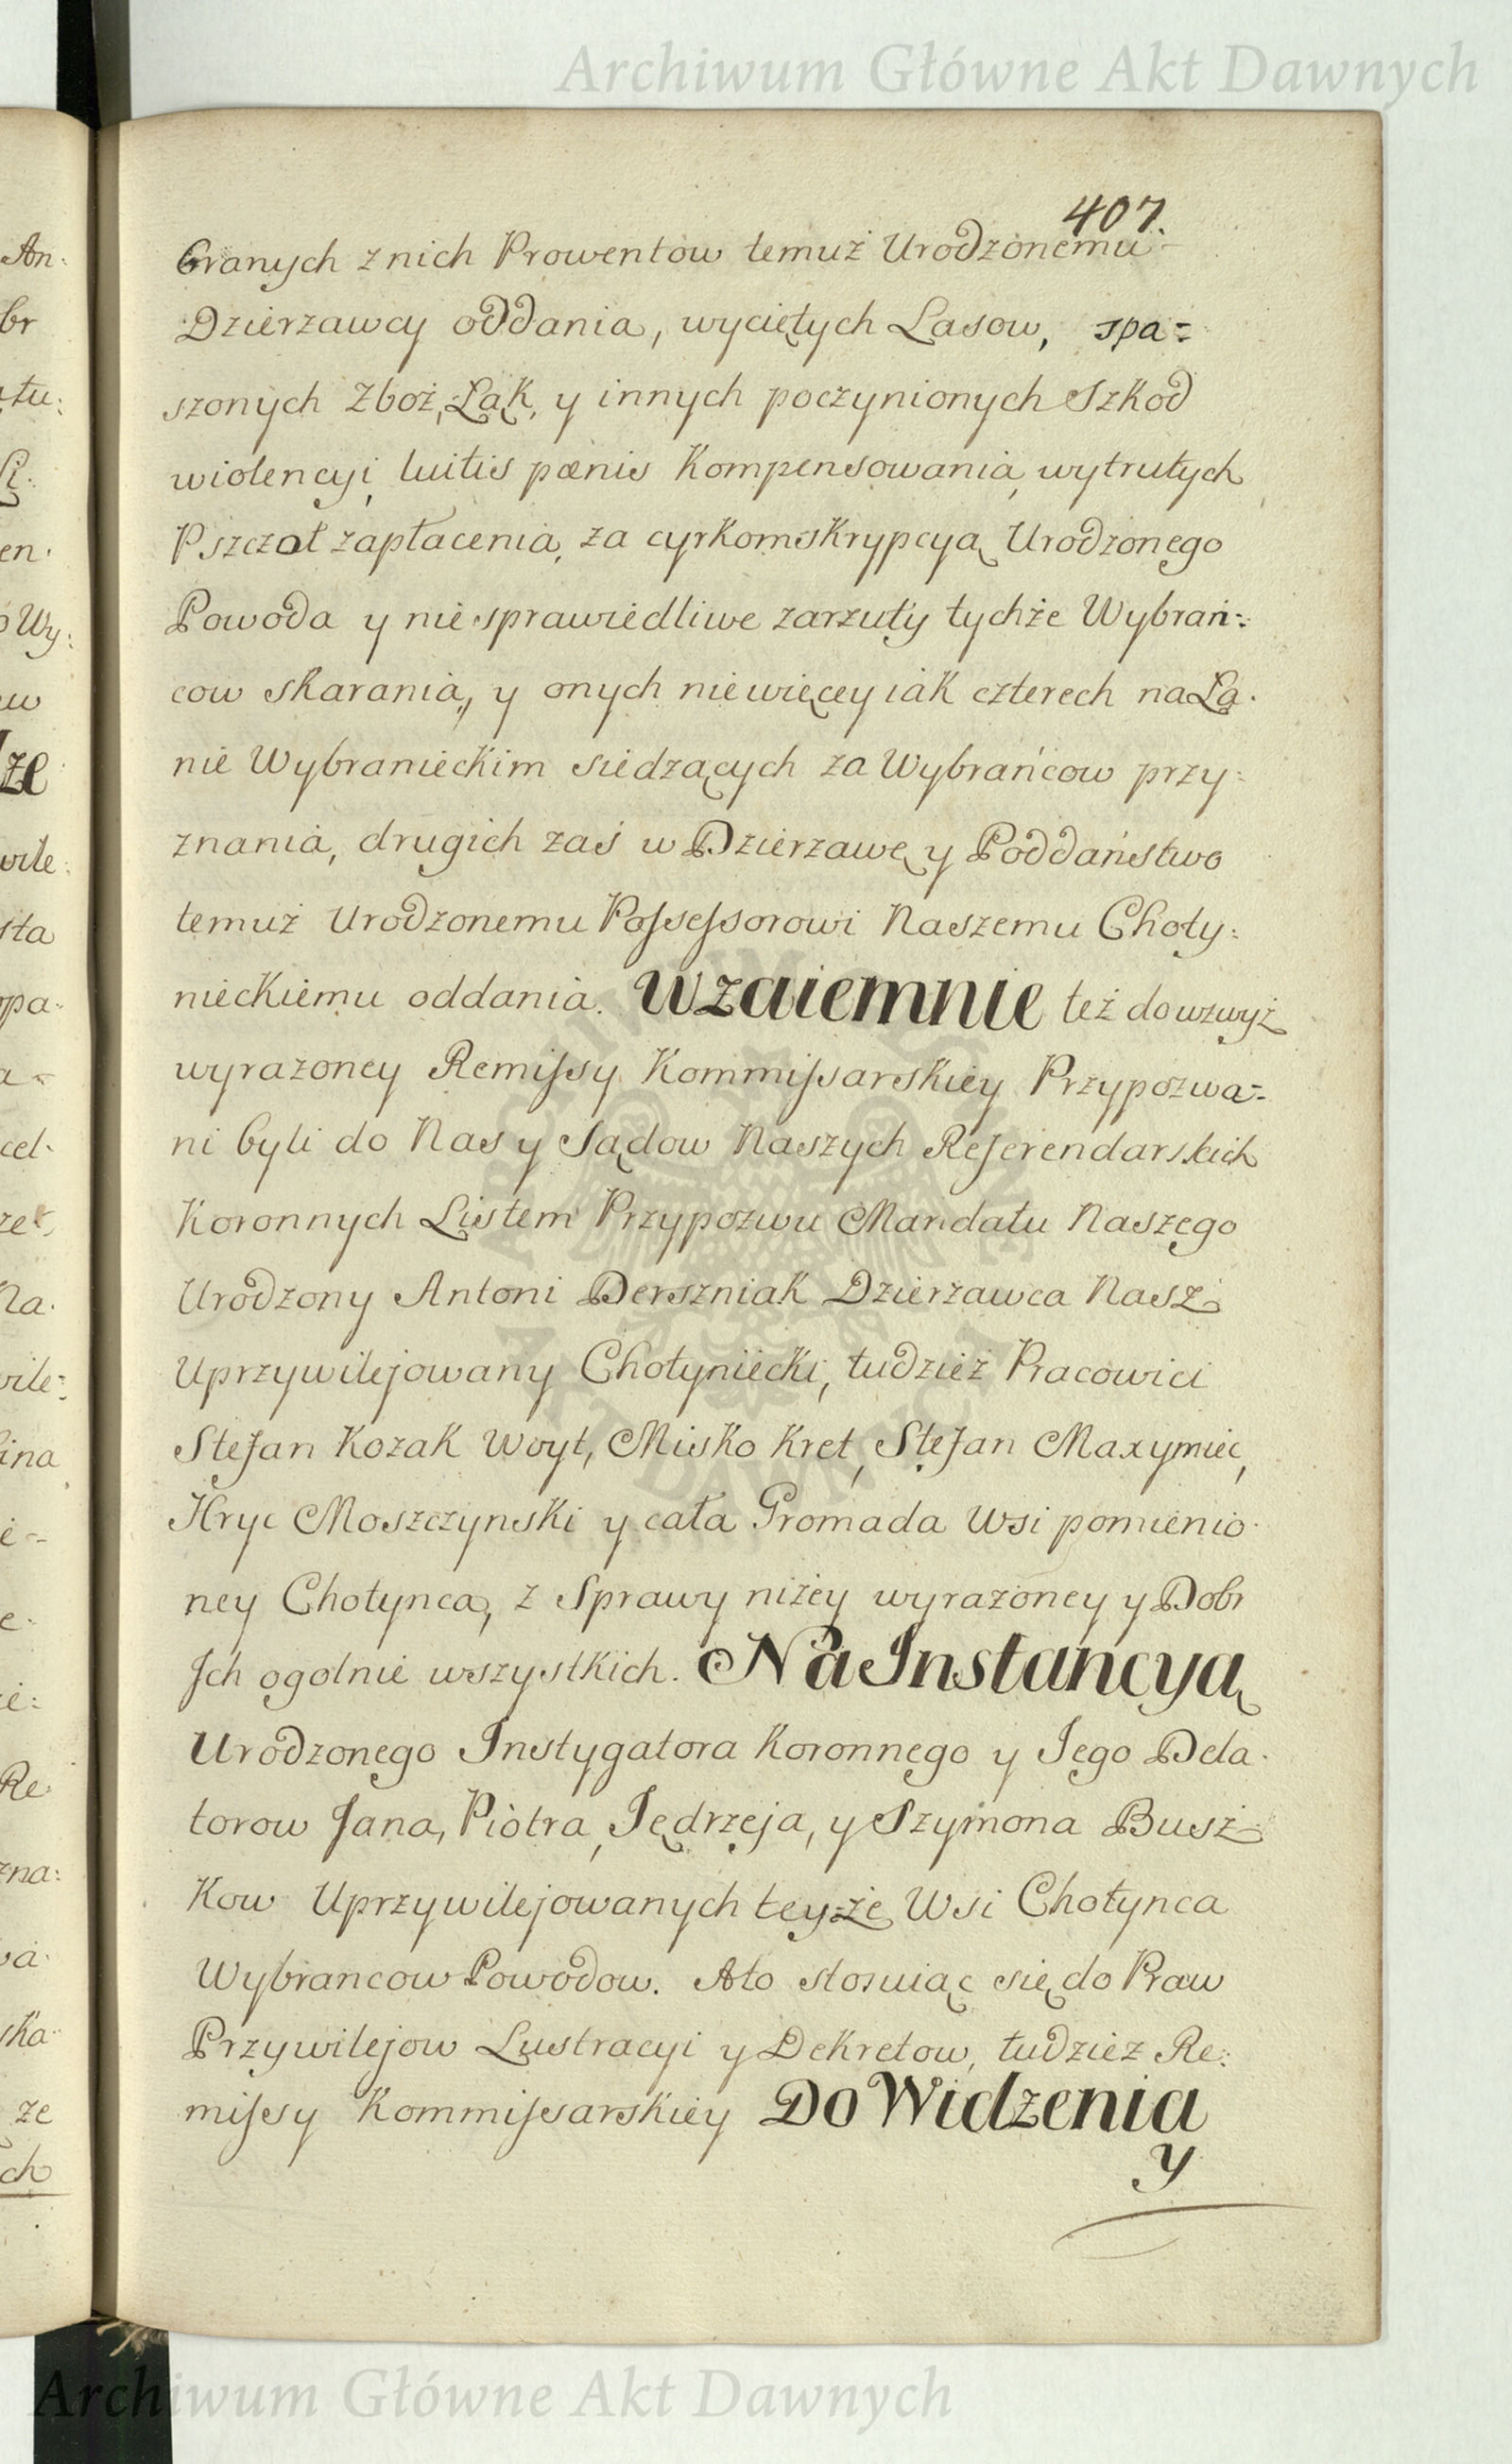 Archiwum Główne Akt Dawnych
407.
branych z nich Prowentow temuż Urodzonemu
Dzierzawcy oddania, wyciętych Lasow, spa=
szonych Zboż, Łąk, y innych poczynionych Szkod
wiolencyi luitis pœnis Kompensowania, wytrutych
Pszczoł zapłacenia, za cyrkomskrypcyą Urodzonego
Powoda y niesprawiedliwe zarzuty tychże Wybrań=
cow skarania, y onych niewięcey iak czterech na Ła=
nie Wybranieckim siedzących za Wybrańcow przy=
znania, drugich zaś w Dzierzawę y Poddaństwo
temuż Urodzonemu Possessorowi Naszemu Choty=
nieckiemu oddania. Wzaiemnie też do wzwyż
wyrażoney Remissy Kommissarskiey Przypozwa=
ni byli do Nas y Sądow Naszych Referendarskich
Koronnych Listem Przypozwu Mandatu Naszego
Urodzony Antoni Derszniak Dzierzawca Nasz
Uprzywilejowany Chotyniecki, tudzież Pracowici
Stefan Kozak Woyt, Misko Kret, Stefan Maxymiec,
Hryc Moszczynski y cała Gromada Wsi pomienio=
ney Chotynca, z Sprawy niżey wyrażoney y Dobr
Ich ogolnie wszystkich. Na Instancyą
Urodzonego Instygatora Koronnego y Jego Dela=
torow Jana, Piotra, Jędrzeja, y Szymona Busz
kow Uprzywilejowanych teyże Wsi Chotynca
Wybrancow Powodow. Ato stosuiąc się do Praw
Przywilejow Lustracyi y Dekretow, tudzież Re=
missy Kommissarskiey Do Widzenia
y
Archiwum Główne Akt Dawnych